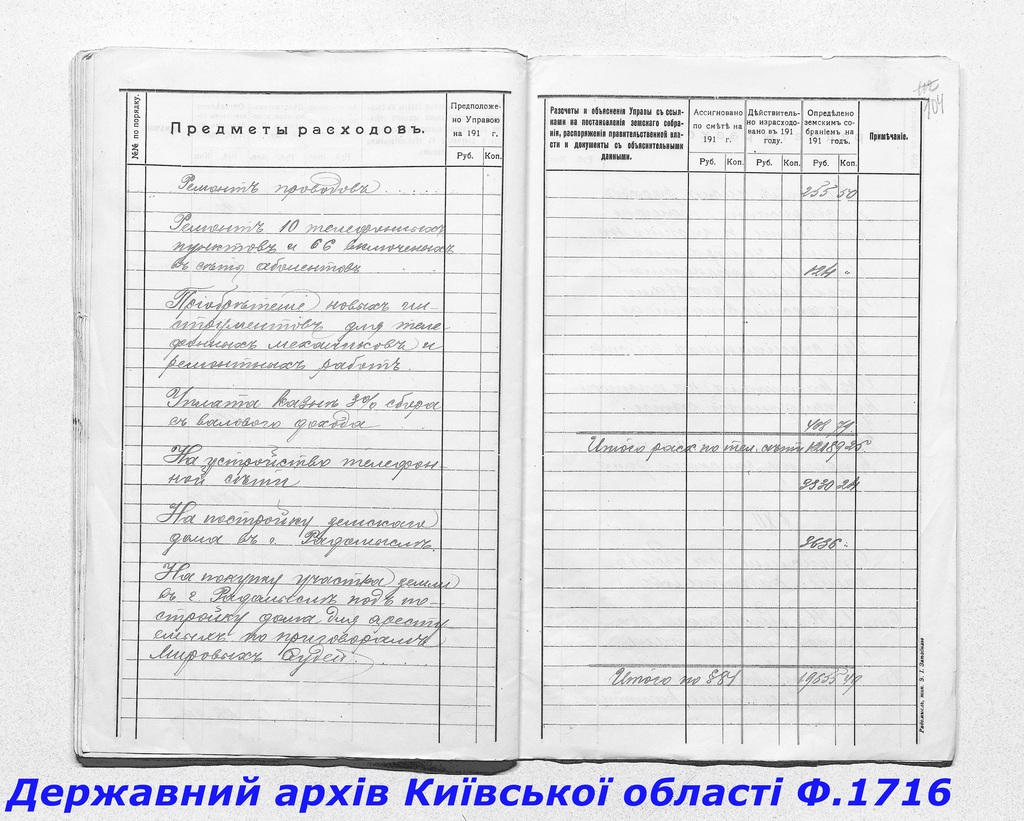 №№ по порядку.
Предметы расходовъ.
Предположе-
но Управою
на 191 г.
Руб. Коп.
Ремонтъ проводовъ
Ремонтъ 10 телефонныхъ
пунктовъ и 66 включенныхъ
въ сѣть абонентовъ
Пріобрѣтеніе новыхъ ин-
струментовъ для теле-
фонныхъ механиковъ и
ремонтныхъ работъ.
Уплата казнѣ 3% сбора
съ валового дохода
На устройство телефон-
ной сѣти
На постройку земскаго
дома въ г. Радомыслѣ.
На покупку участка земли
въ г. Радомыслѣ подъ по-
стройку дома для аресту
емыхъ по приговорамъ
Мировыхъ Судей.
104
Разсчеты и объясненія Управы съ ссыл-
ками на постановленія земскаго собра-
нія, распоряженія правительственной вла-
сти и документы съ объяснительными
данными.
Ассигновано
по смѣтѣ на
191 г.
Руб. Коп.
Дѣйствитель-
но израсходо-
вано въ 191
году.
Руб. Коп.
Опредѣлено
земскимъ со-
браніемъ на
191 годъ.
Руб. Коп.
Примѣчаніе.
255 50
124 "
408 71
Итого расх по тел. сѣти 12189 25
3330 24
3636 "
Итого по §§1 19555 49
Державний архів Київської області Ф.1716